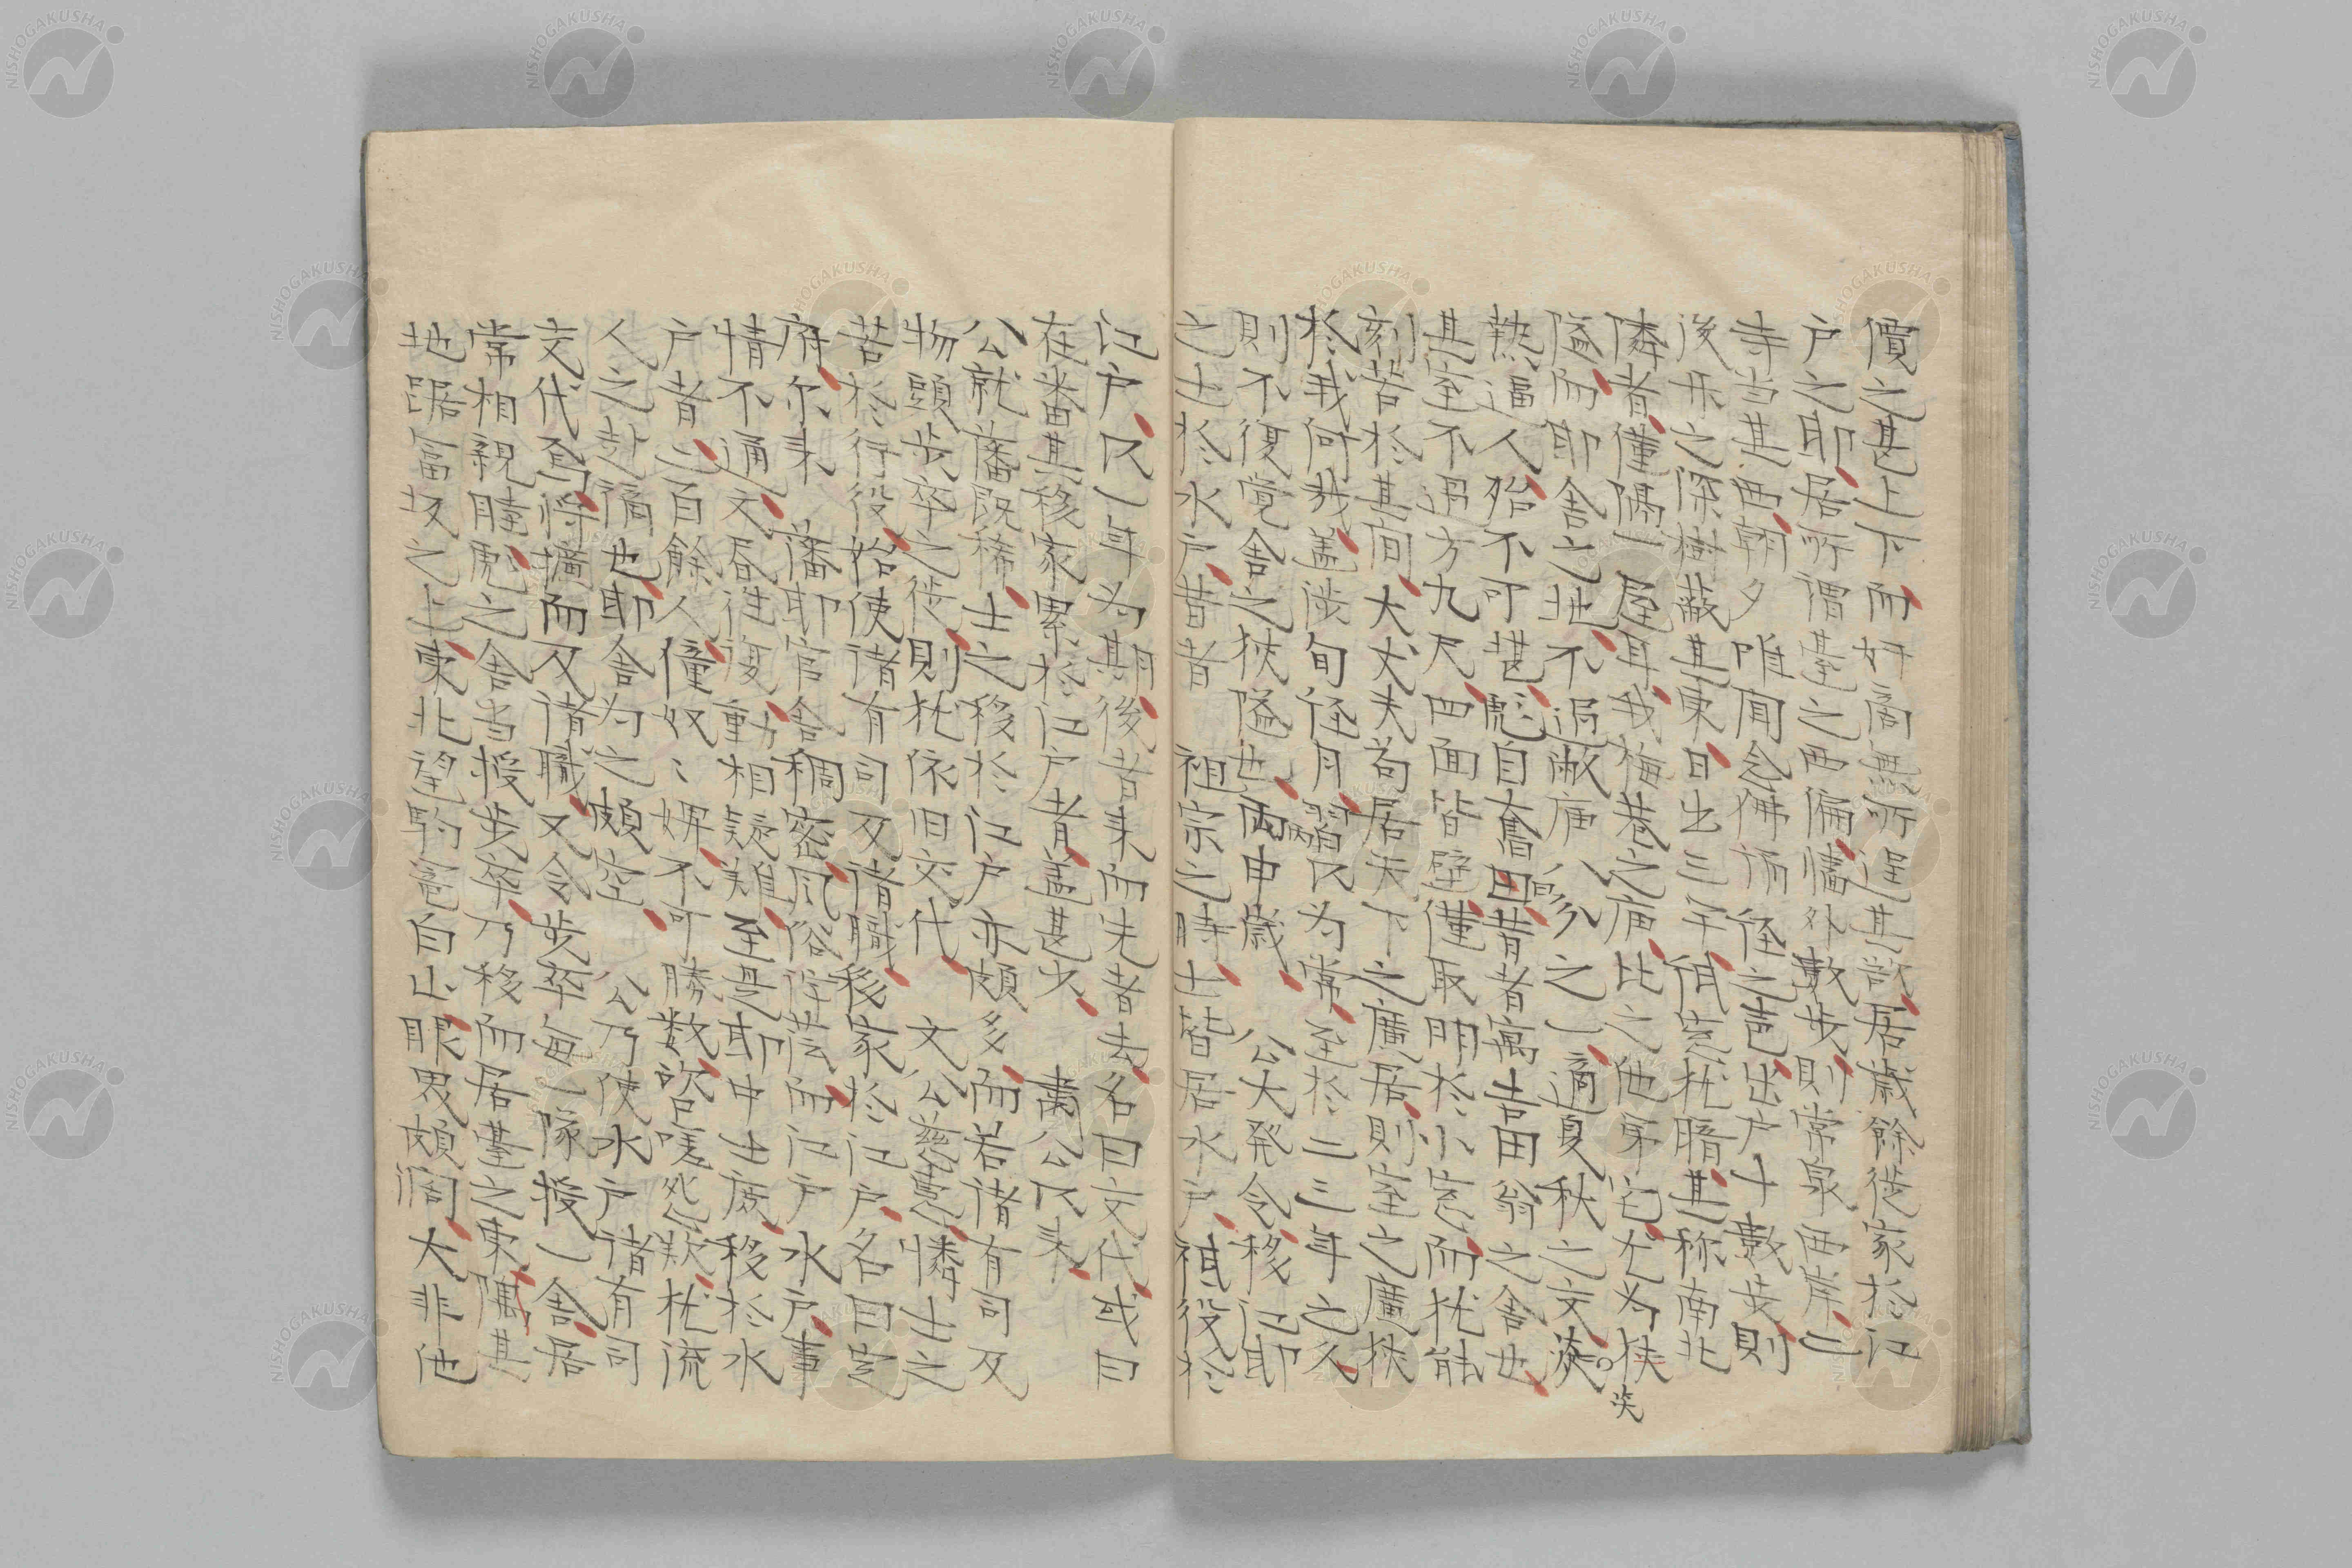 價之甚上下而姸商無所逞其詐居歳餘徙家於江
戸之邸居所謂臺之西偏墻外數歩則常泉西岸二
寺当其西朝夕唯聞念佛誦經之声出戸十數歩則
後丘之深樹蔽其東日出三竿低窓猶暗其称南北
隣者僅隔一屋耳我梅巷之痛比之他弟宅尤為狭
隘而邸舍之地不過敝唐彪之一適夏秋之交湊
熱逼人殆不可堪彪自奮曰昔者寓吉田翁之舍也
其室不過方九尺四面皆壁僅取明於小窓而猶能
刻苦於其間大丈夫苟居天下之廣居則室之廣狭
於我何哉蓋渉旬径月習以為常至於二三年之久
則不復覚舍之狭隘也丙申歳 公大発令移江邸
之士於水戸昔者 祖宗之時士皆居水戸祗役於
江戸以一年為期後者来而先者去名曰交代或曰
在番其移家累於江戸者蓋甚少 粛公以来
公就藩既稀士之移於江戸亦頗多而若諸有司及
物頭歩卒之徒則猶依旧交代 文公慈惠憐士之
苦於行役始使諸有司及諸職移家於江戸名曰定
府尔来 藩邸官舍稠密風俗浮蕩而江戸水戸事
情不通文書往復動相疑難至是邸中士族移於水
戸者二百餘人僮奴〻婢不可勝数咨嗟怨歎猶流
人之赴謫也邸舍為之頗空 公乃使水戸諸有司
交代焉將擴而及諸職又令歩卒毎一隊授一舍居
常相親睦彪之舍当授歩卒乃移而居臺之東隅其
地踞富坂之上東北望駒籠白山眼界頗濶大非他